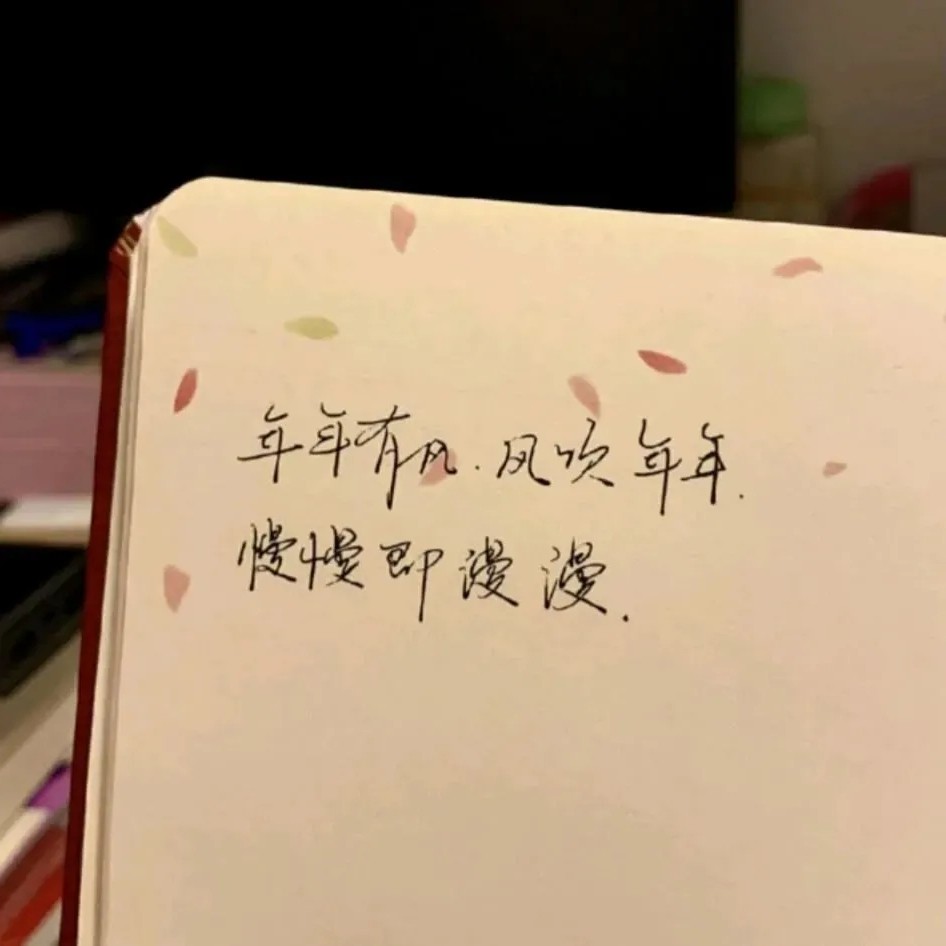 年年有风.风吹年年.
慢慢即漫漫.